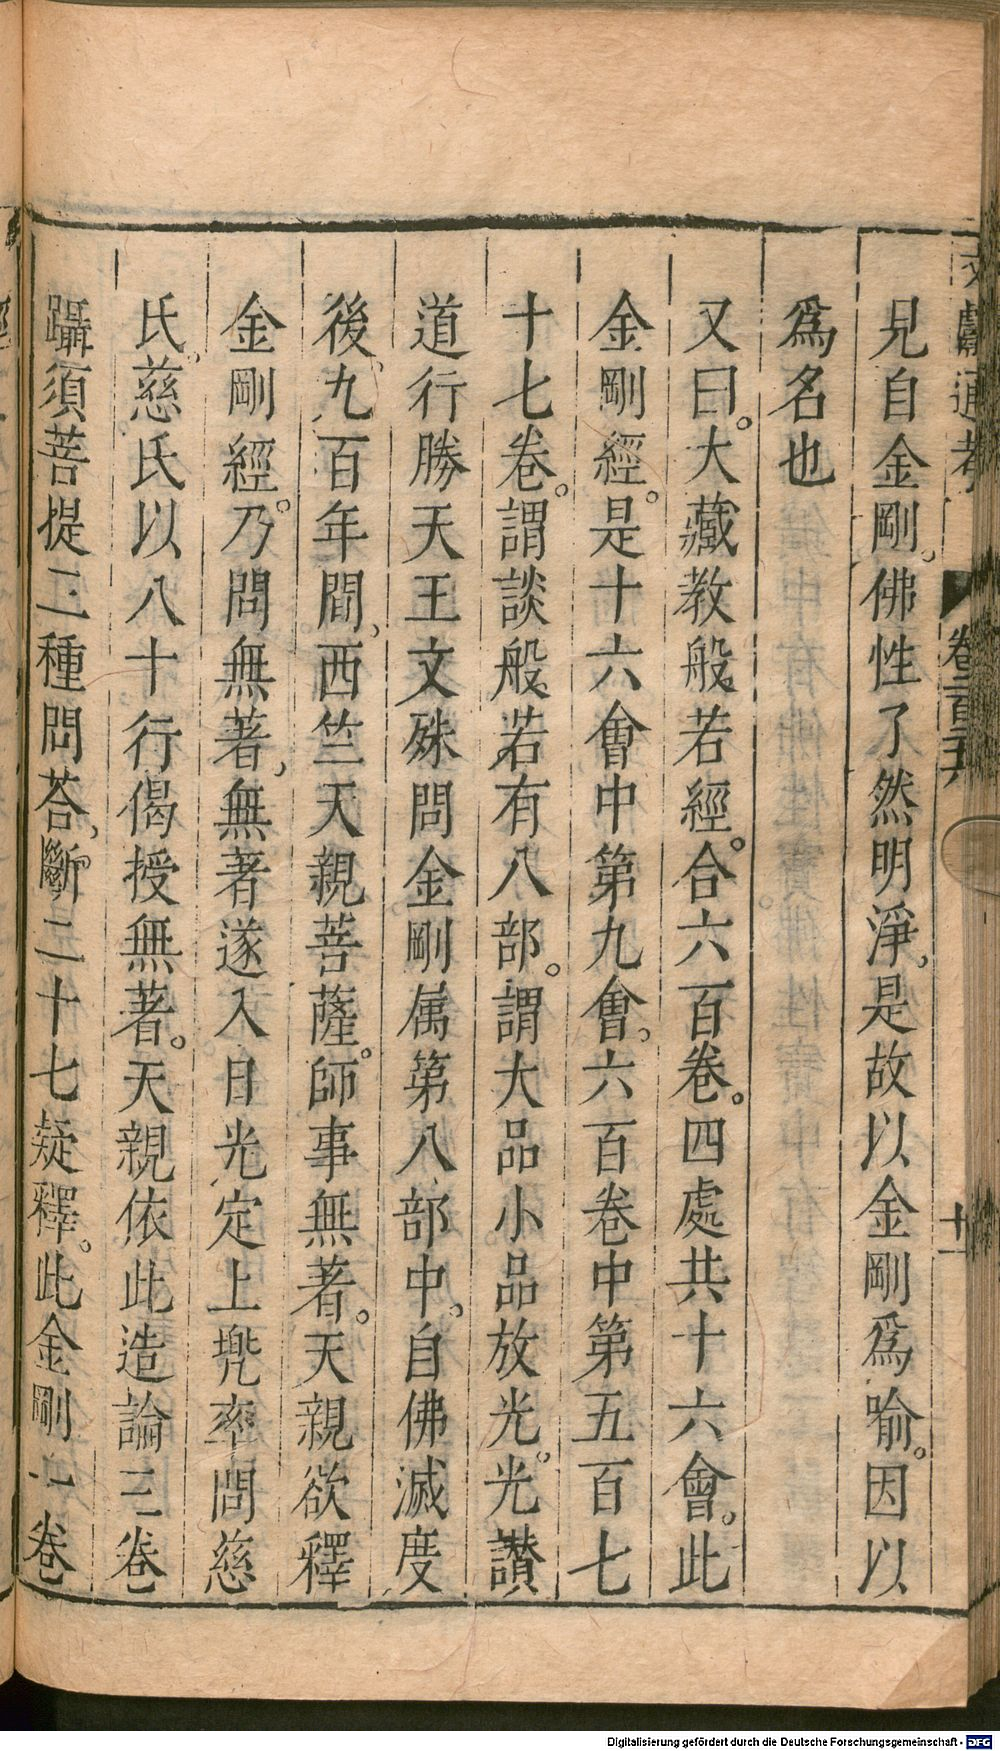 文獻通考
卷二百二十六
十一
見自金剛。佛性了然明淨，是故以金剛爲喻。因以
爲名也
又曰。大藏教般若經。合六百卷。四處共十六會。此
金剛經。是十六會中第九會，六百卷中第五百七
十七卷。謂談般若有八部。謂大品小品放光。光讃
道行勝天王文殊問金剛属第八部中。自佛滅度
後，九百年間，西竺天親菩薩。師事無著。天親欲釋
金剛經。乃問無著，無著遂入日光定上兠率問慈
氏，慈氏以八十行偈授無著。天親依此造論三卷
躡須菩提二種問荅，斷二十七疑釋。此金剛一卷
Digitalisierung gefördert durch die Deutsche Forschungsgemeinschaft - DFG